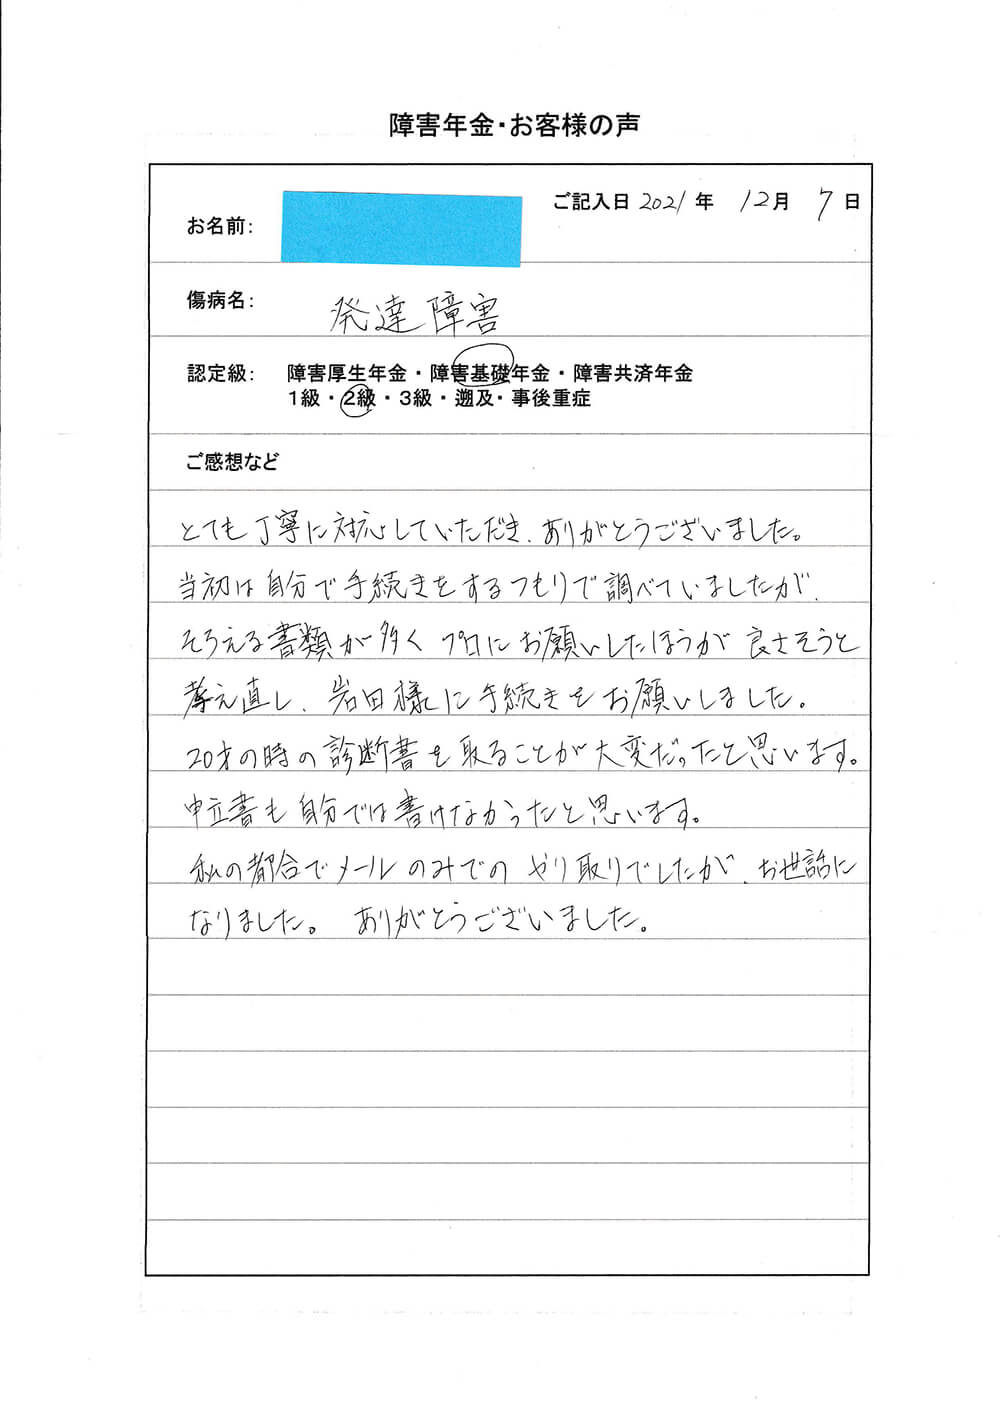 障害年金・お客様の声
ご記入日 2021 年 12月 7日
お名前：
傷病名： 発達障害
認定級： 障害厚生年金・障害基礎年金・障害共済年金
1級・2級・3級・遡及・事後重症
ご感想など
とても丁寧に対応していただき、ありがとうございました。
当初は自分で手続きをするつもりで調べていましたが、
そろえる書類が多く プロにお願いしたほうが 良さそうと
考え直し、岩田様に手続きをお願いしました。
20才の時の診断書を取ることが大変だったと思います。
申立書も自分では書けなかったと思います。
私の都合でメールのみでの やり取りでしたが、お世話に
なりました。 ありがとうございました。